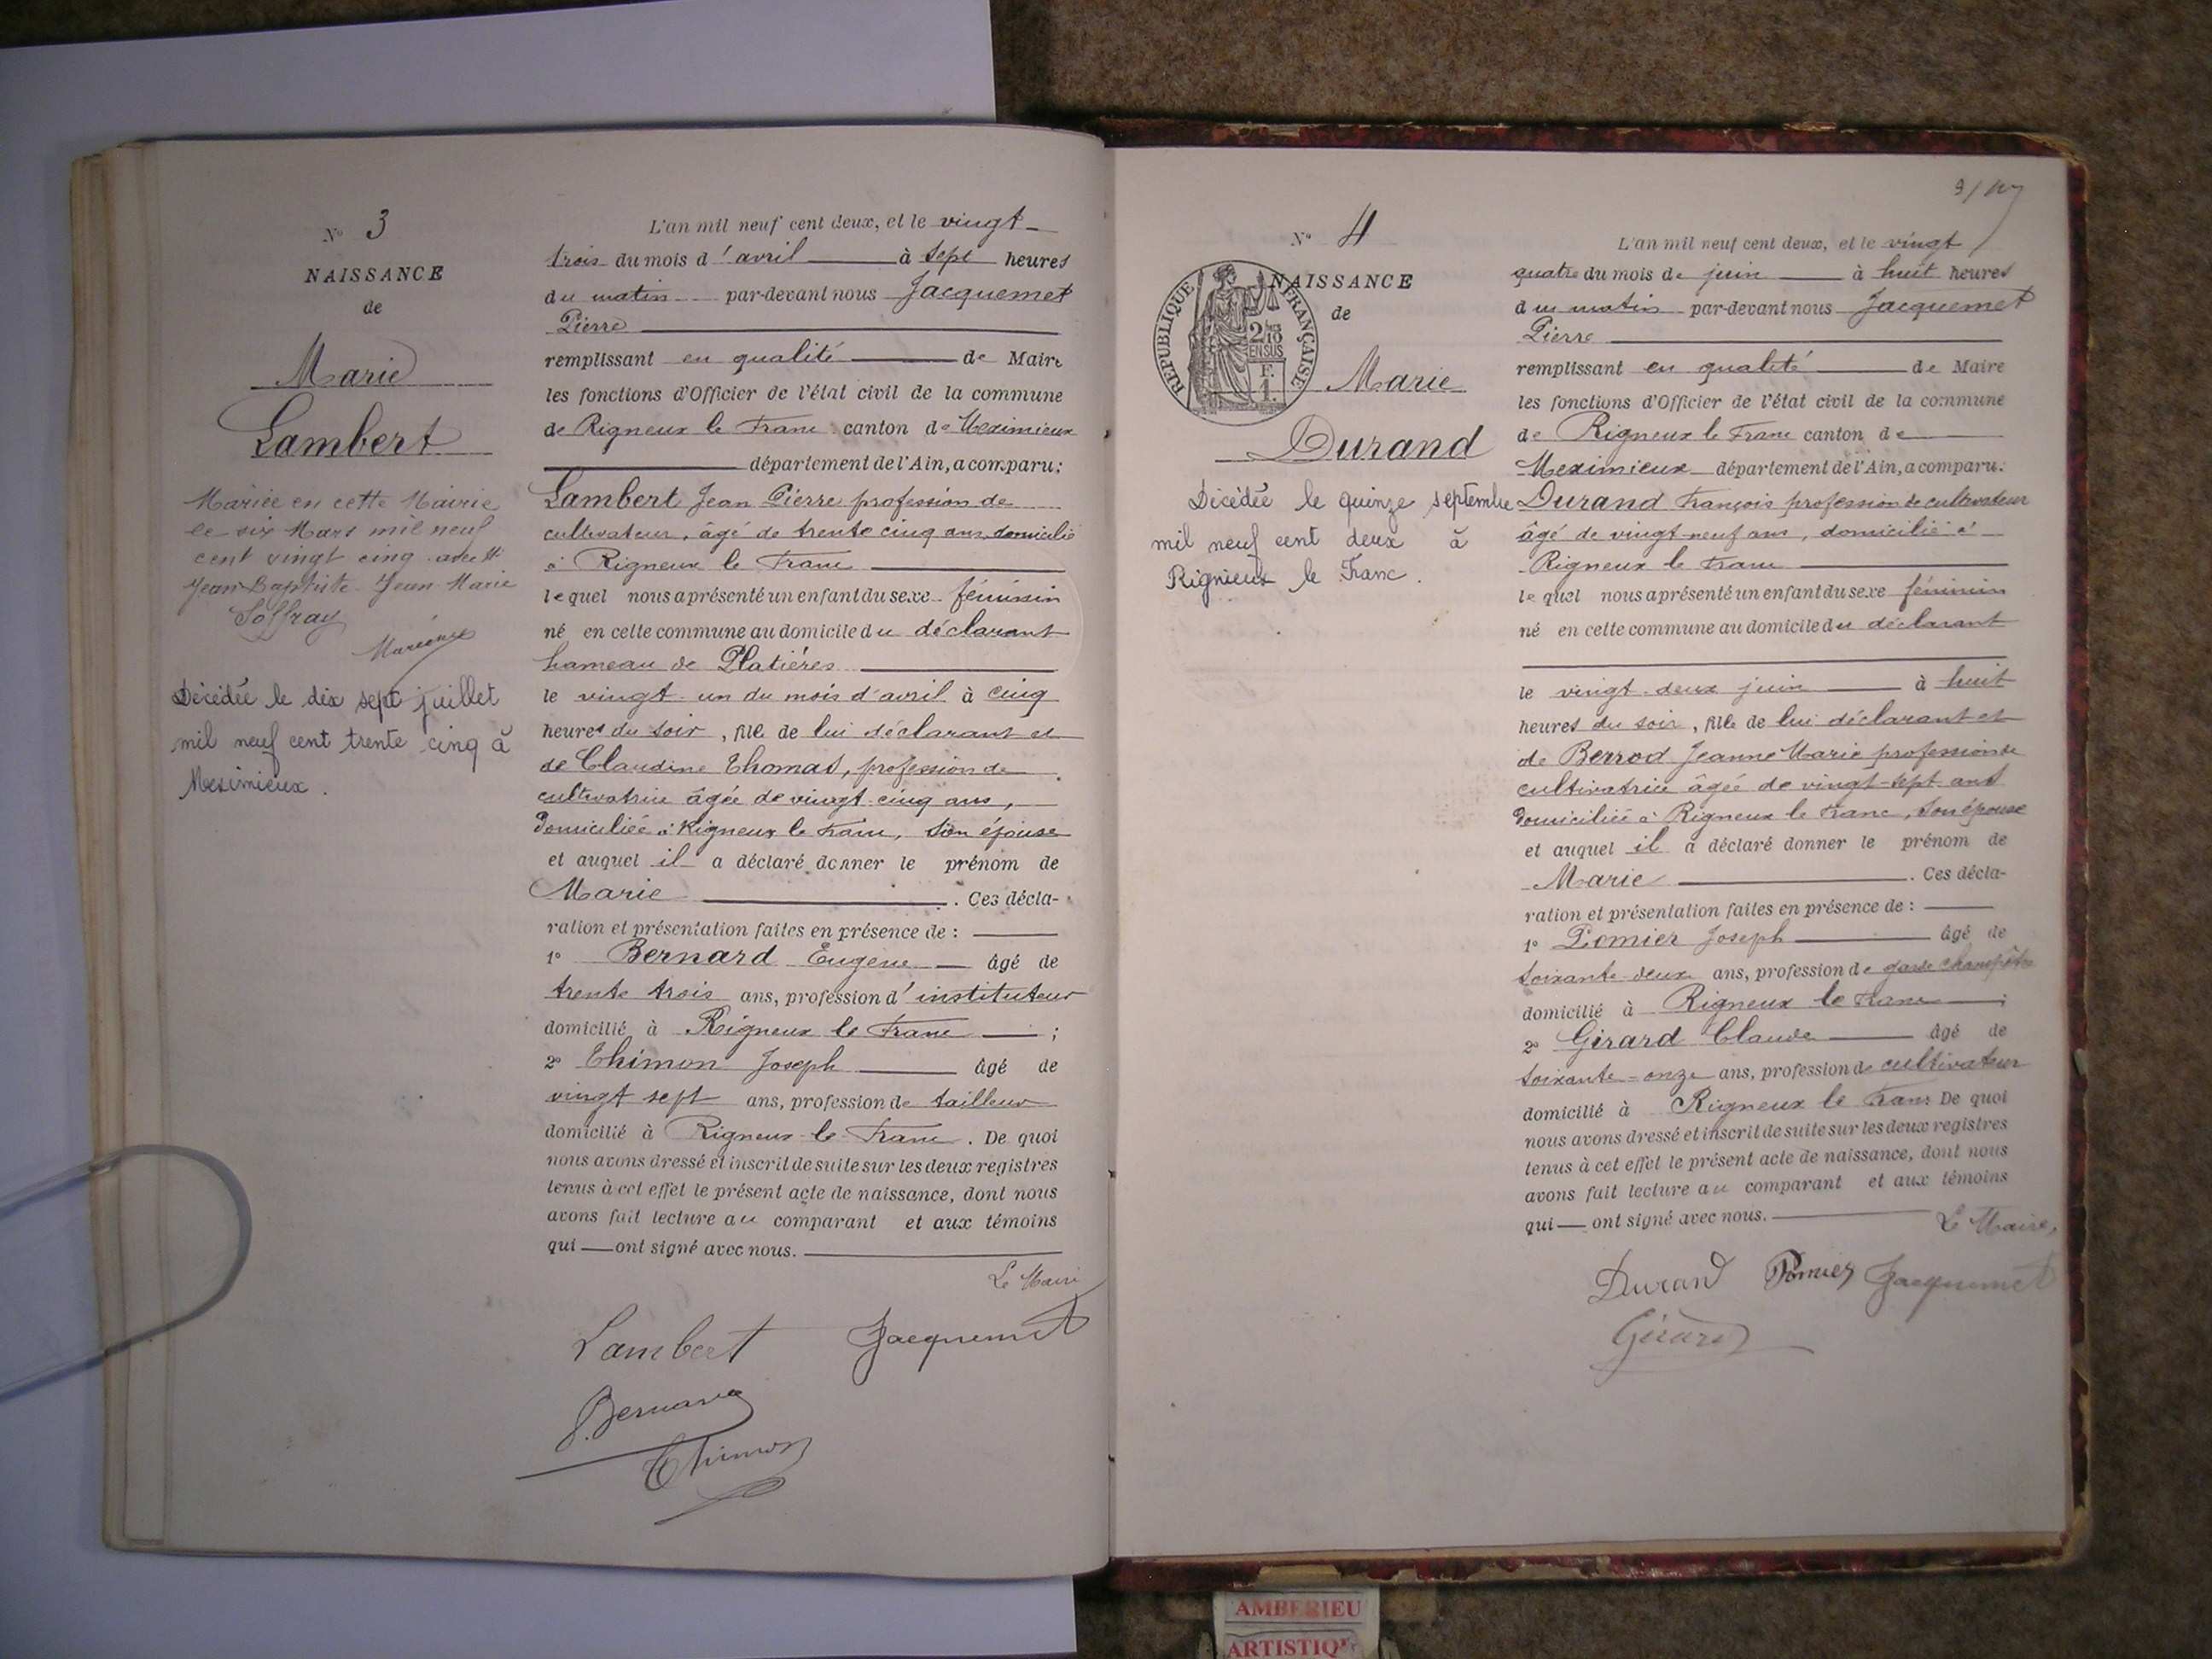 N° 3
NAISSANCE
de
Marie
Lambert
Mariée en cette Mairie
le six Mars mil neuf
cent vingt cinq avec
Jean-Baptiste Jean-Marie
Soffray
Décédée le dix sept juillet
mil neuf cent trente cinq à
Meximieux.
L'an mil neuf cent deux, et le vingt-
trois du mois d'avril à sept heures
du matin par-devant nous Jacquemet
Pierre
remplissant en qualité de Maire
les fonctions d'Officier de l'état civil de la commune
de Rigneux le Franc canton de Meximieux
département de l'Ain, a comparu:
Lambert Jean Pierre profession de
cultivateur, âgé de trente cinq ans, domicilié
à Rigneux le Franc
lequel nous a présenté un enfant du sexe féminin
né en cette commune au domicile du déclarant
hameau de Platières
le vingt-un du mois d'avril à cinq
heures du soir, fille de lui déclarant et
de Claudine Thomas, profession de
cultivatrice âgée de vingt-cinq ans,
domiciliée à Rigneux le Franc, son épouse
et auquel il a déclaré donner le prénom de
Marie . Ces décla-
ration et présentation faites en présence de :
1° Bernard Eugène âgé de
trente trois ans, profession d'instituteur
domicilié à Rigneux le Franc ;
2° Thimon Joseph âgé de
vingt sept ans, profession de tailleur
domicilié à Rigneux le Franc. De quoi
nous avons dressé et inscrit de suite sur les deux registres
tenus à cet effet le présent acte de naissance, dont nous
avons fait lecture au comparant et aux témoins
qui ont signé avec nous.
Le Maire
Lambert Jacquemet
Bernard
Thimon
N° 4
NAISSANCE
de
RÉPUBLIQUE FRANÇAISE
2/10
EN SUS
F.
1.
Marie
Durand
Décédée le quinze septembre
mil neuf cent deux à
Rignieux le Franc.
L'an mil neuf cent deux, et le vingt
quatre du mois de juin à huit heures
du matin par-devant nous Jacquemet
Pierre
remplissant en qualité de Maire
les fonctions d'Officier de l'état civil de la commune
de Rigneux le Franc canton de
Meximieux département de l'Ain, a comparu:
Durand François profession de cultivateur
âgé de vingt-neuf ans, domicilié à
Rigneux le Franc
lequel nous a présenté un enfant du sexe féminin
né en cette commune au domicile du déclarant
le vingt-deux juin à huit
heures du soir, fille de lui déclarant et
de Berrod Jeanne Marie profession de
cultivatrice âgée de vingt-sept ans
domiciliée à Rigneux le Franc, son épouse
et auquel il a déclaré donner le prénom de
Marie . Ces décla-
ration et présentation faites en présence de :
1° Pomier Joseph âgé de
soixante-deux ans, profession de garde champêtre
domicilié à Rigneux le Franc ;
2° Girard Claude âgé de
soixante-onze ans, profession de cultivateur
domicilié à Rigneux le Franc De quoi
nous avons dressé et inscrit de suite sur les deux registres
tenus à cet effet le présent acte de naissance, dont nous
avons fait lecture au comparant et aux témoins
qui ont signé avec nous.
Le Maire,
Durand Pomier Jacquemet
Girard
AMBERIEU
ARTISTIQUE